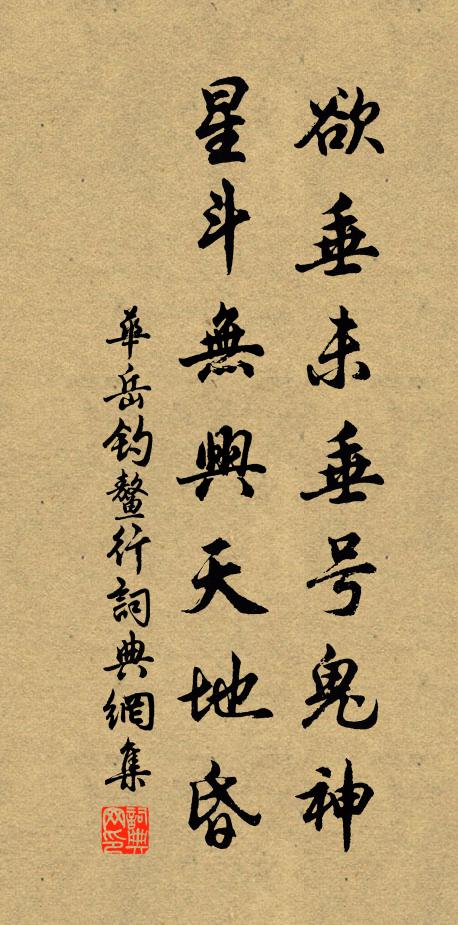 欲垂未垂号鬼神
星斗無興天地昏
華岳釣鰲行詞典網集
詞典网印